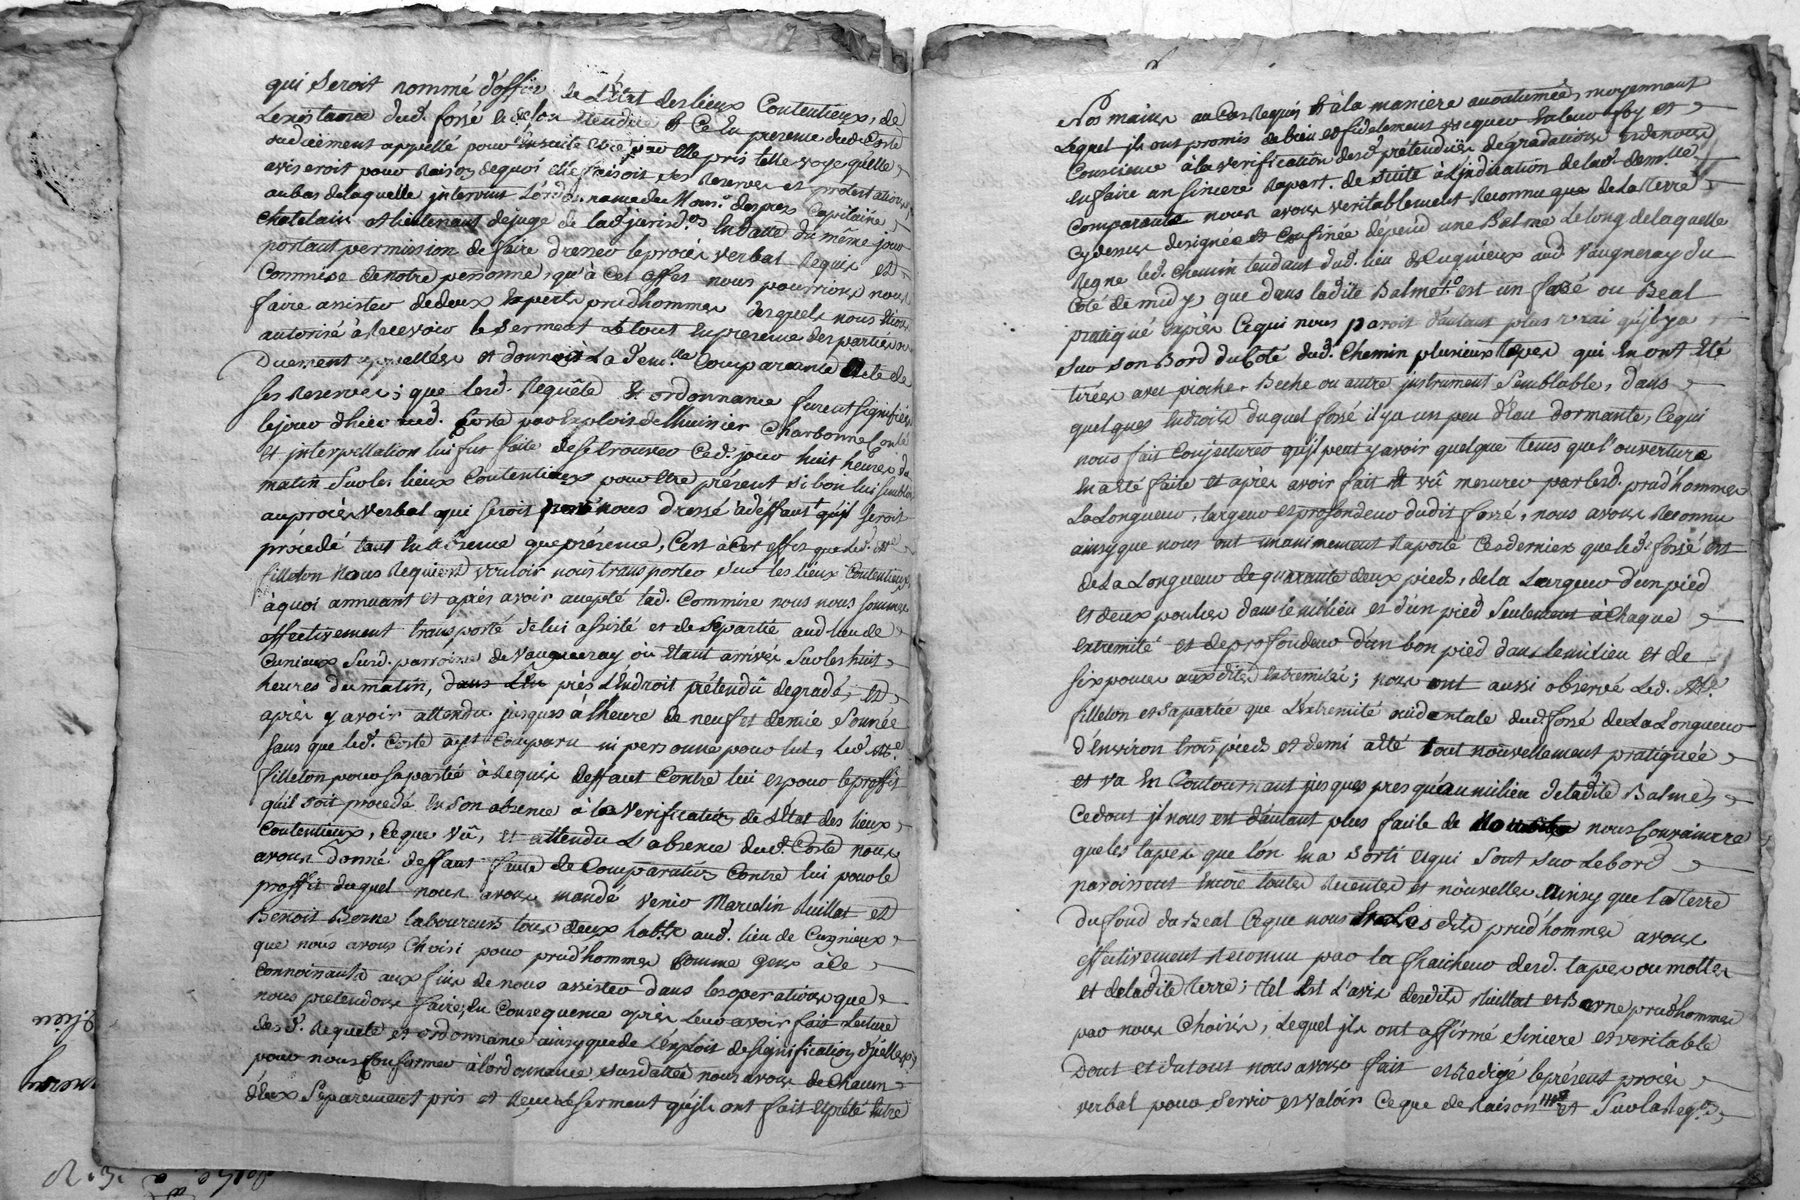 qui seroit nommé d'office de L'Etat des lieux Contentieux, de
L'existance dud. fossé et de son etendüe et Ce En presence dud. Coste
ou düement appellé pour Ensuitte etre par Elle pris telle voye qu'elle
aviseroit pour Raison dequoi elle faisoit ses Reserves et protestations,
au bas de laquelle intervint L'ordonnance de Monsr. despres Capitaine
Chatelain et lieutenant de juge de lad. jurisdon. En datte du même jour
portant permission de faire dresser le procès verbal Requis et
Commise de notre personne, qu'à Cet effet nous pourrions nous
faire assister de deux Experts prudhommes desquels nous etions
autorisé à Recevoir le serment Le tout En presence des parties ou
Duement appellées et donnoit à La demlle. Comparante Acte de
ses Reserves; que lesd. Requête et ordonnance furent signifiées
le jour d'hier aud. Coste par Exploit de l'huissier Charbonnel
Et interpellation lui fut faite de se trouver Ced. jour huit heures du
matin Sur les lieux Contentieux pour etre présent si bon lui sembloit
au procès verbal qui seroit par nous dressé à deffaut qu'il seroit
procédé tant En absence que présence, C'est à Cet effet que led. Me.
filleton Nous Requiert vouloir nous transporter sur les lieux Contentieux
à quoi annuant et après avoir accepté lad. Commise nous nous sommes
effectivement transporté de lui assisté et de sa partie aud. lieu de
Cunieux Susd. parroisse de Vaugneray où Etant arrivés Sur les huit
heures du matin, dans L'En près L'Endroit prétendu degradé, Et
après y avoir attendu jusques à l'heure de neuf et demie Sonnée
Sans que led. Coste ait Comparu ni personne pour lui, Led. Me.
filleton pour sa partie à Requis deffaut Contre lui et pour le proffit
qu'il soit procedé En son absence à la Verification de L'Etat des lieux
Contentieux, Ce que Vû, et attendu L'absence dud. Coste nous
avons donné deffaut faute de Comparution Contre lui pour le
proffit duquel nous avons mandé venir Marcelin Ruillat et
Benoit Borne laboureurs tous deux habts. aud. lieu de Cugnieux
que nous avons Choisi pour prud'hommes Comme gens à Ce
Connoissants aux fins de nous assister dans les operations que
nous pretendons faire, En Consequence après Leur avoir fait Lecture
desd. Requete et ordonnance ainsy que de L'exploit de signification d'icelles,
pour nous Conformer à l'ordonnance susdattée nous avons de Chacun
d'eux Separement pris et Reçu Le serment qu'ils ont fait et prêté Entre
Nos mains au Cas Requis Et à la maniere accoutumée, moyennant
Lequel ils ont promis de bien et fidelement vacquer En leur foy et
Conscience à la verification desd. prétendües dégradations Et de nous
en faire un sincere Raport. de suite à L'indication de lad. demlle.
Comparante nous avons veritablement Reconnu que de La terre
Cy dessus designée et Confinée dépend une Balme Le long de laquelle
Regne led. Chemin tendant dud. lieu de Cugnieux aud. Vaugneray du
Coté de midy, que dans ladite Balme est un fossé ou Beal
pratiqué Exprès Ce qui nous paroit d'autant plus vrai qu'il y a
Sur son Bord du Coté dud. Chemin plusieurs Tapes qui En ont Eté
tirées avec pioche, Beche ou autre instrument Semblable, dans
quelques Endroits duquel fossé il y a un peu d'Eau dormante, Ce qui
nous fait Conjecturer qu'il peut y avoir quelque tems que l'ouverture
En a été faite et après avoir fait Et vû mesurer par lesd. prud'hommes
La Longueur, largeur et profondeur dudit fossé, nous avons Reconnu
ainsy que nous ont unanimement Raporté Ces derniers que led. fossé est
de La Longueur de quarante deux pieds, de la Largeur d'un pied
et deux pouces dans le milieu et d'un pied Seulement à Chaque
extremité et de profondeur d'un bon pied dans le milieu et de
six pouces auxdites Extremités; nous ont aussi observé Led. Me.
filleton et sa partie que L'extremité occidentale dud. fossé de La Longueur
d'Environ trois pieds et demi a été tout nouvellement pratiquée
et va En Contournant jusques presqu'au milieu de ladite Balme,
Ce dont il nous est d'autant plus facile de nous Convaincre
que les tapes que l'on En a sorti et qui Sont Sur Le bord
paroissent Encore toutes Recentes et nouvelles Ainsy que la terre
du fond du Beal Ce que nous Et Lesdits prud'hommes avons
effectivement Reconnu par la fraicheur desd. tapes ou mottes
et de ladite terre; tel Est L'avis desdits Ruillat et Borne prud'hommes
par nous Choisis, Lequel ils ont affirmé sincere et veritable
Dont et du tout nous avons fait et Redigé le présent procès
verbal pour servir et valoir Ce que de Raison et Sur la Reqon.